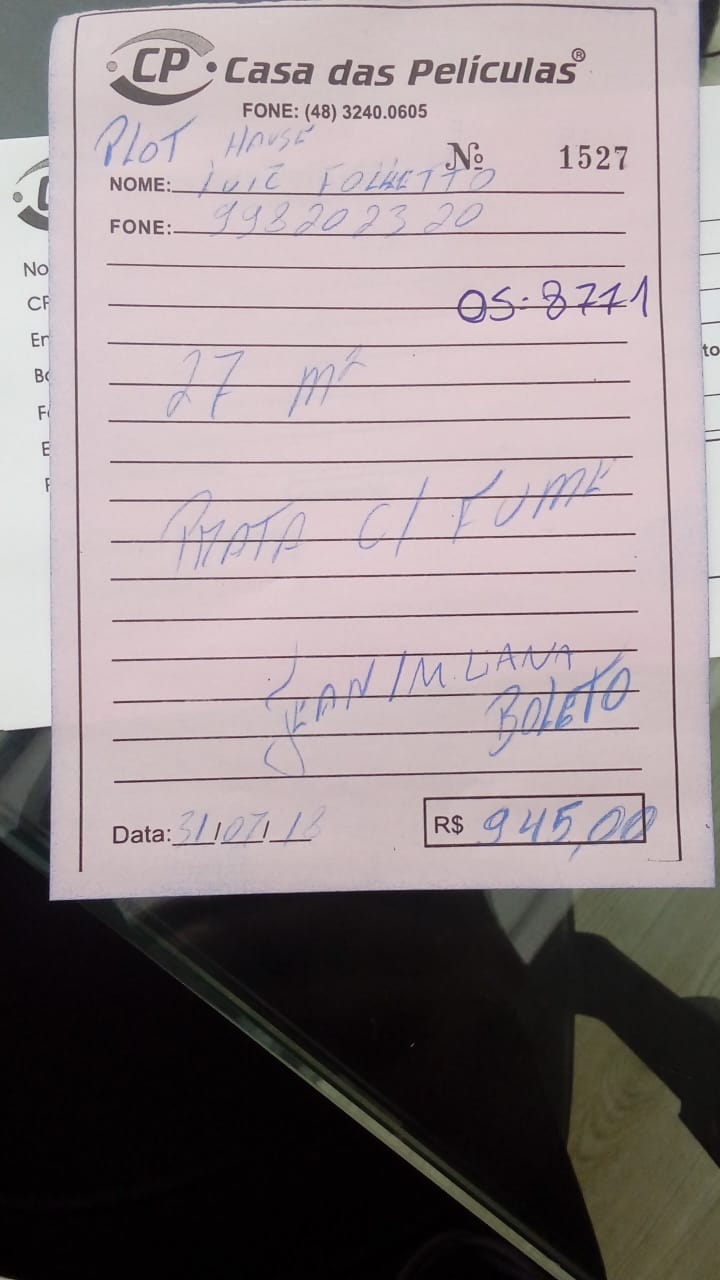 CP Casa das Películas®
FONE: (48) 3240.0605
PLOT HAUSE
Nº 1527
NOME: LUIZ FOLLETTO
FONE: 998202320
OS-8771
27 m²
PRATA C/ FUME
JEAN / M. LANA
BOLETO
Data: 31/07/18
R$ 945,00
No
CF
En
Bo
F
E
F
to